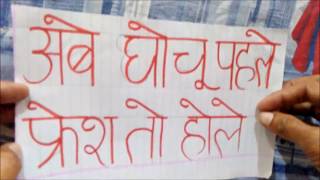 अबे घोचू पहले
फ्रेश तो होले